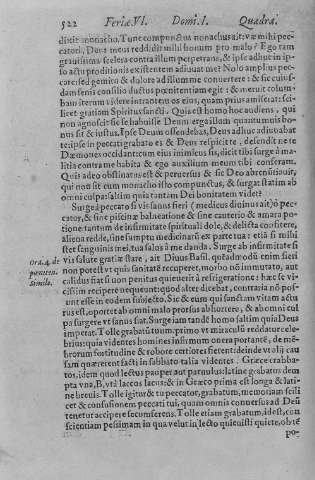 522 Feriæ. VI. Domi. I. Quadra.
dixit monacho. Tunc compunctus monachus ait: væ mihi pec-
catori, Deus meus reddidit mihi bonum pro malo? Ego tam
grauissima scelera contra illum perpetrans, & ipse adhuc in ip-
so actu proditionis existentem adiuuat me? Nolo amplius pec-
care: sed gemitu & dolore ad illum me conuertere: & sic cuiuf-
dam senis consilio ductus pœnitentiam egit: & meruit colum-
bam iterum videre intrantem os eius, quam prius amiserat: sci-
licet gratiam Spiritus sancti. Quis est homo hoc audiens, qui
non agnoscit se sic habuisse Deum erga illum quantumuis bo-
nus sit & iustus? Ipse Deum offendebas, Deus adhuc adiuuabat
te: ipse in peccati grabato es & Deus respicit te, descendit ne te
Dæmones occidant: cum eius inimicus sis, dicit tibi surge à ma-
litia contra me habita & ego auxilium meum tibi conseram.
Quis adeo obstinatus est & peruersus & sic Deo abrenuntiauit,
qui non sit cum monacho isto compunctus, & surgat statim ab
omni culpa: saltim quia tantam Dei bonitatem videt?
Surge à peccato si vis sanus fieri (medicus diuinus ait) ò pec-
cator, & sine piscinæ balneatione & sine cauterio & amara po-
tione: tantum de infirmitate spirituali dole, & delicta confitere,
aliena redde, sine sumpto medicinari ex parte tua: etiã si mihi
stet sanguinis mei, tua salus à me danda. Surge ab infirmitate si
vis salute gratiæ stare, ait Diuus Basil. quẽadmodũ enim fieri
Ora. 4. de non potest vt quis sanitatẽ recuperet, morbo nõ immutato, aut
pœniten. calidus fiat si non penitus quieuerit à refrigeratione: hæc se vi-
simila. cissim recipere nequeunt: quod alter dicebat, contraria nõ pos-
sunt esse in eodem subiecto. Sic & cum qui sanctam vitam actu
rus est, oportet ab omni malo prorsus abhorrere, & ab omni cul
pa surgere vt sanus fiat. Surge iam tandẽ homo saltim quia Deus
imperat. Tolle grabatũ tuum: primo vt miraculũ reddatur cele-
brius: quia videntes homines infirmum onera portantẽ, de mẽ-
brorum fortitudine & robore certiores fierent: deinde vt ioj̃ cau
sam quærerent facti in sabbato talia videntes. Græce crabba-
tos, idem quod lectus pauper aut paruulus: latine grabatus dem
pta vna, B, vtã laccos lacus: & in Græco prima est longa & lati-
ne breuis. Tolle igitur & tu peccator, grabatum, memoriam scili
cet & confusionem peccati tui, quam omnis conuersus ad Deũ
tenetur accipere secum ferens. Tolle etiam grabatum, id est, con
scientiam pessimam in qua velut in lecto quieuisti quietẽ, obtẽ
po-